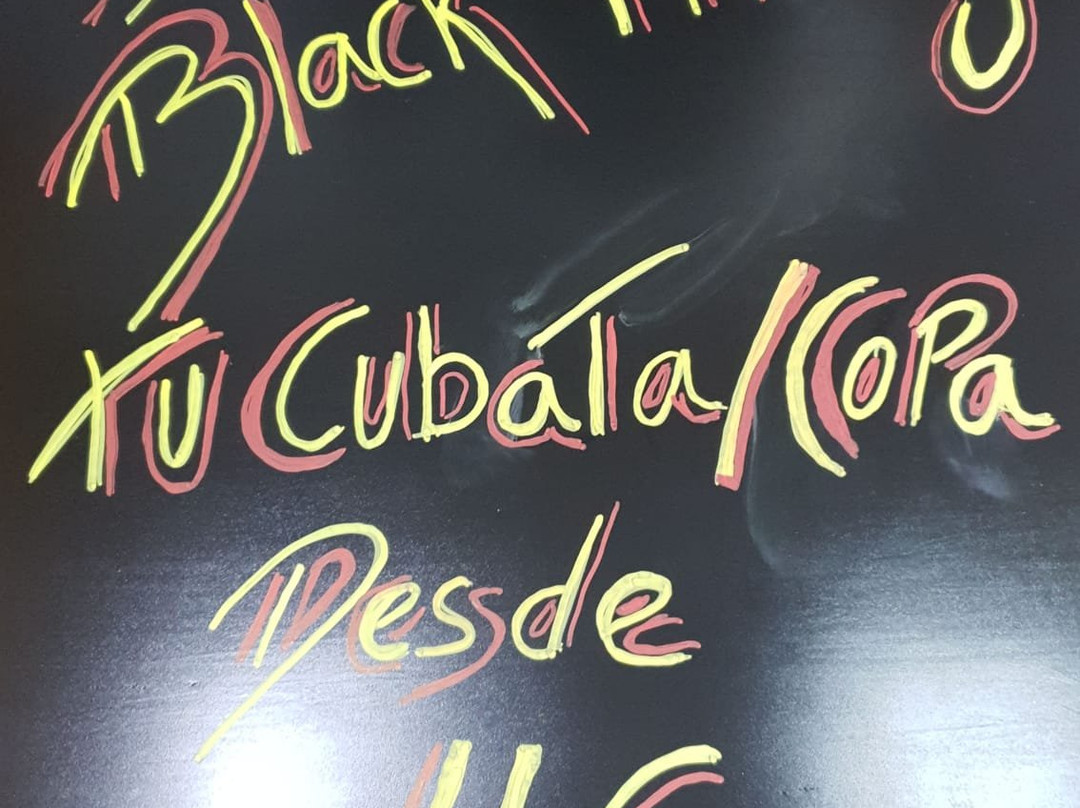 Black
Tu Cubáta/Copa
Desde